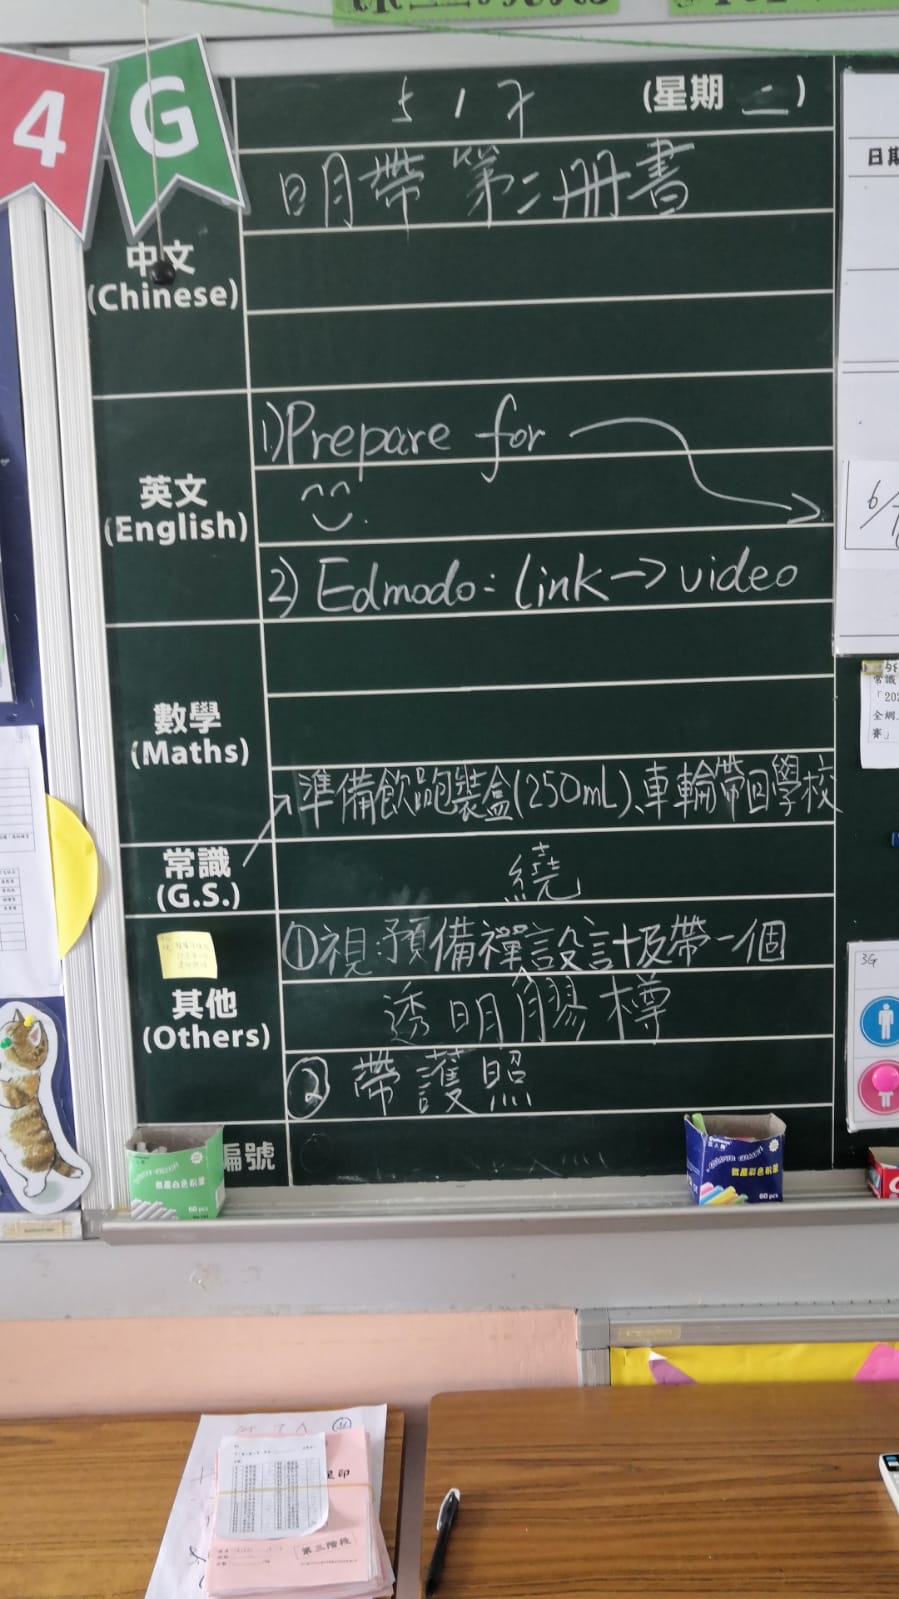 4 G
5 1 7 (星期 二 )
明帶第二冊書
中文
(Chinese)
1) Prepare for
英文
(English)
2) Edmodo: link → video
數學
(Maths)
準備飲跑裝盒(250mL)、車輪帶回學校
常識
(G.S.)
繞
①視:預備禪設計及帶一個
其他
(Others)
透明膠樽
② 帶護照
編號
60 pcs
60 pcs
日期
6/
常識
「202
賽」
3G
第三階段